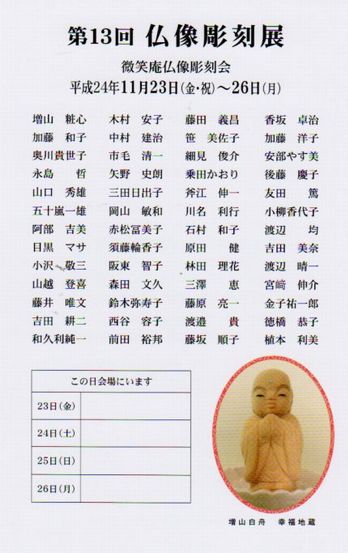 第13回 仏像彫刻展
微笑庵仏像彫刻会
平成24年11月23日(金・祝)〜26日(月)
増山 粧心 木村 安子 藤田 義昌 香坂 卓治
加藤 和子 中村 建治 笹 美佐子 加藤 洋子
奥川貴世子 市毛 清一 細見 俊介 安部やす美
永島 哲 矢野 史朗 乗田かおり 後藤 慶子
山口 秀雄 三田日出子 斧江 伸一 友田 篤
五十嵐一雄 岡山 敏和 川名 利行 小柳香代子
阿部 吉美 赤松冨美子 石村 和子 渡辺 均
目黒 マサ 須藤輪香子 原田 健 吉田 美奈
小沢 敬三 阪東 智子 林田 理花 渡辺 晴一
山越 登喜 森田 文久 三澤 恵 宮﨑 伸介
藤井 唯文 鈴木弥寿子 藤原 亮一 金子祐一郎
吉田 耕二 西谷 容子 渡邉 貴 徳橋 恭子
和久利純一 前田 裕邦 藤坂 順子 植本 利美
この日会場にいます
23日(金)
24日(土)
25日(日)
26日(月)
増山白舟 幸福地蔵